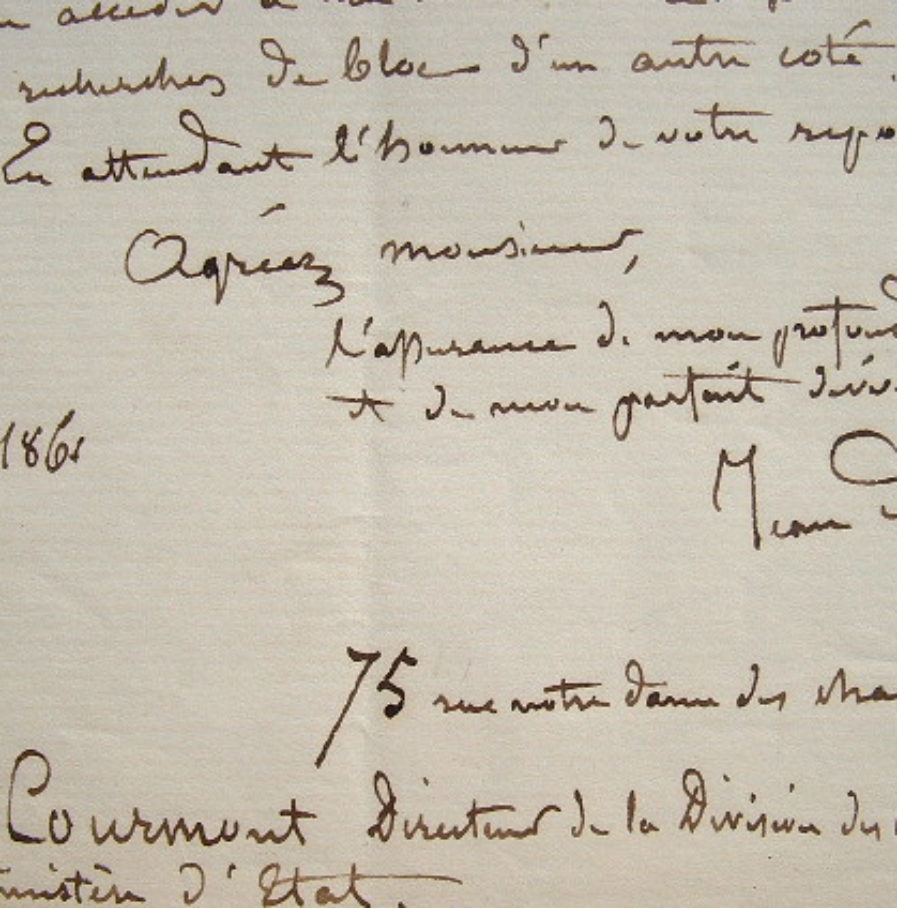 accéder à
recherches de bloc d'un autre coté.
En attendant l'honneur de votre repo
Agréez monsieur,
l'assurance de mon profond
et de mon parfait dév
1861
Jean
75 rue notre dame des cha
Courmont Directeur de la Division des
ministère d'Etat.